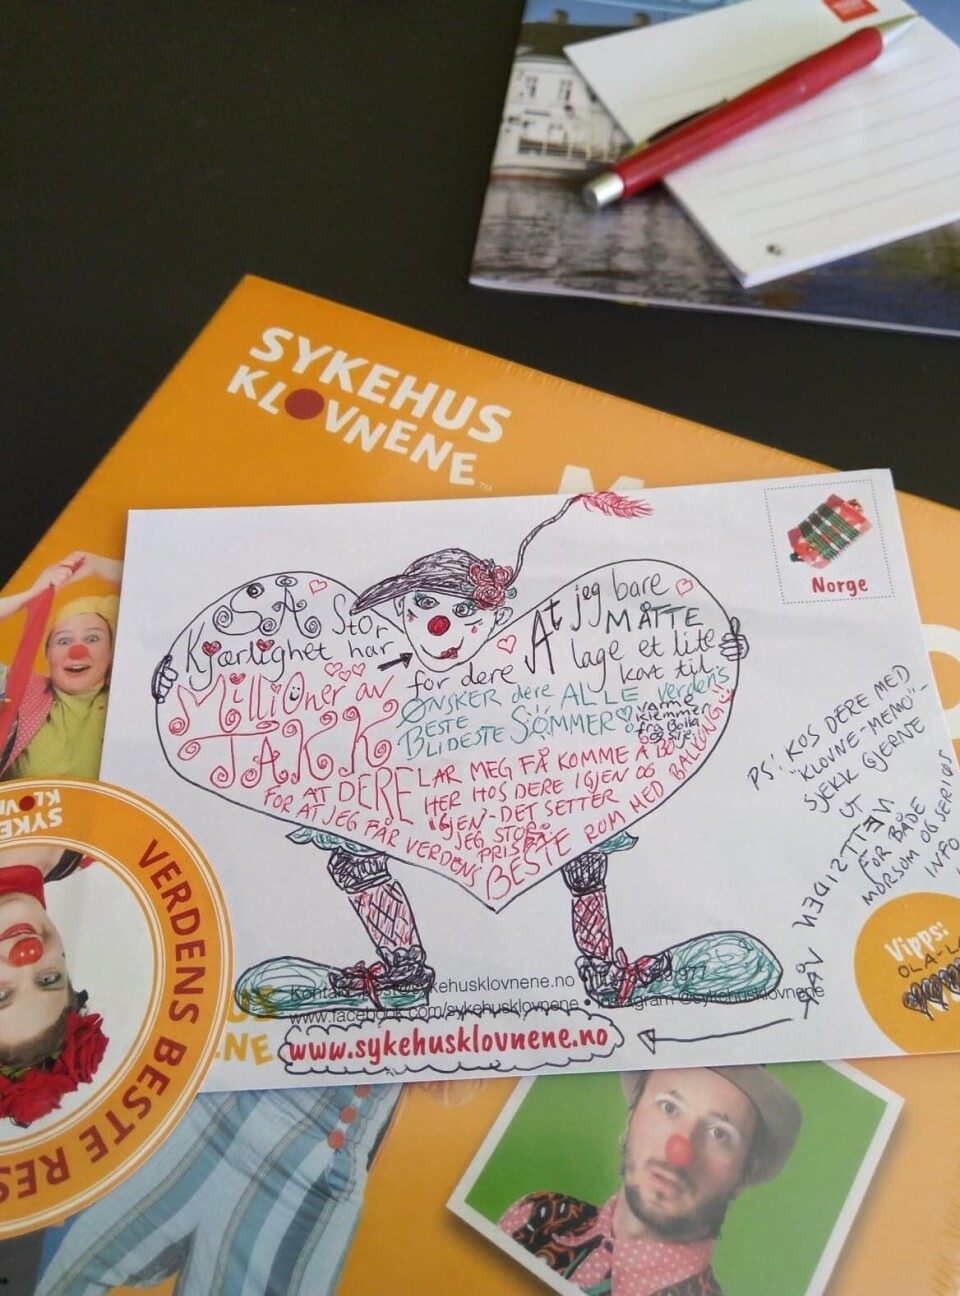 SYKEHUS
KLOVNENE™
Norge
SÅ Stor
Kjærlighet har
for dere
At jeg bare
MÅTTE
lage et lite
kort til
Millioner av
TAKK
ØNSKER dere ALLE verdens
BESTE
BLIDESTE SJÖMMER
varme
klemmer
fra Bella
FOR AT DERE LAR MEG FÅ KOMME Å BO
HER HOS DERE IGJEN OG
IGJEN - DET SETTER
JEG STOR
PRIS PÅ
AT JEG FÅR VERDENS
BESTE ROM MED BALKONG!!
PS: KOS DERE MED
"KLOVNE-MEMO"
SJEKK GJERNE
UT
NETTSIDEN
VÅR
FOR BÅDE
MORSOM OG SERIØS
INFO
Vipps:
OLA-L
www.facebook.com/sykehusklovnene • Instagram @sykehusklovnene
www.sykehusklovnene.no
VERDENS BESTE RES
SYKE
KLOV
NE